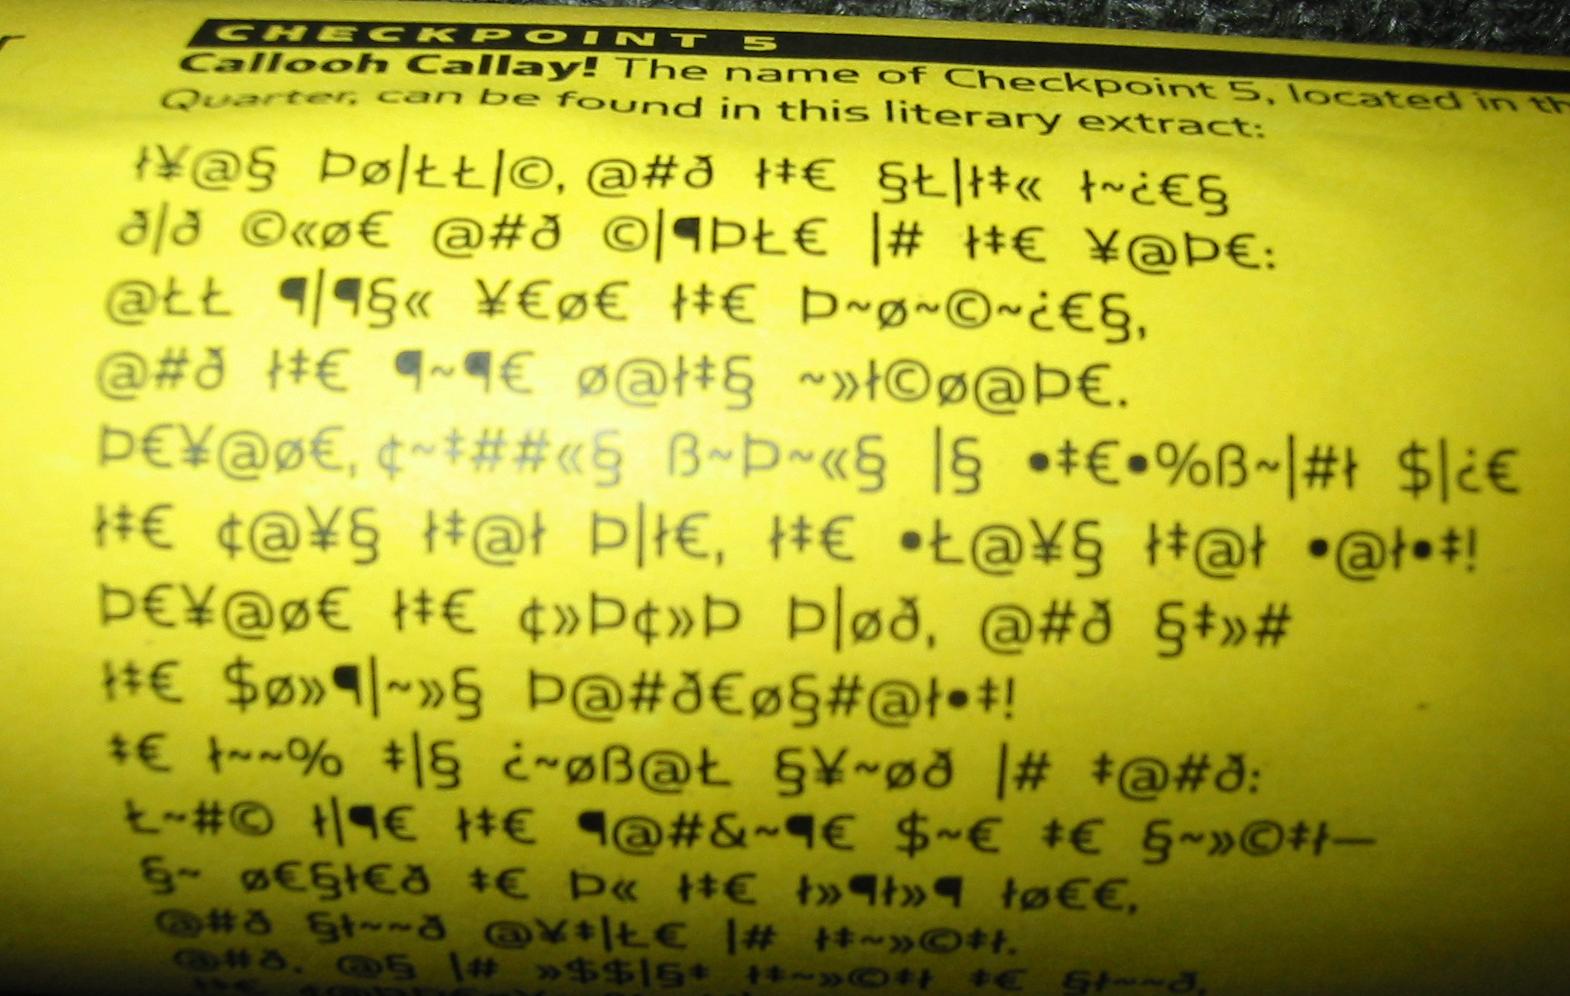 CHECKPOINT 5
Callooh Callay! The name of Checkpoint 5, located in th
Quarter, can be found in this literary extract:
ł¥@§ Þø|ŁŁ|©, @#ð ł‡€ §Ł|ł‡« ł~¿€§
ð|ð ©«ø€ @#ð ©|¶ÞŁ€ |# ł‡€ ¥@Þ€:
@ŁŁ ¶|¶§« ¥€ø€ ł‡€ Þ~ø~©~¿€§,
@#ð ł‡€ ¶~¶€ ø@ł‡§ ~»ł©ø@Þ€.
Þ€¥@ø€, ¢~‡##«§ ß~Þ~«§ |§ •‡€•%ß~|#ł $|¿€
ł‡€ ¢@¥§ ł‡@ł Þ|ł€, ł‡€ •Ł@¥§ ł‡@ł •@ł•‡!
Þ€¥@ø€ ł‡€ ¢»Þ¢»Þ Þ|øð, @#ð §‡»#
ł‡€ $ø»¶|~»§ Þ@#ð€ø§#@ł•‡!
‡€ ł~~% ‡|§ ¿~øß@Ł §¥~øð |# ‡@#ð:
Ł~#© ł|¶€ ł‡€ ¶@#&~¶€ $~€ ‡€ §~»©‡ł—
§~ ø€§ł€ð ‡€ Þ« ł‡€ ł»¶ł»¶ łø€€,
@#ð §ł~~ð @¥‡|Ł€ |# ł‡~»©‡ł.
@#ð, @§ |# »$$|§‡ ł‡~»©‡ł ‡€ §ł~~ð,